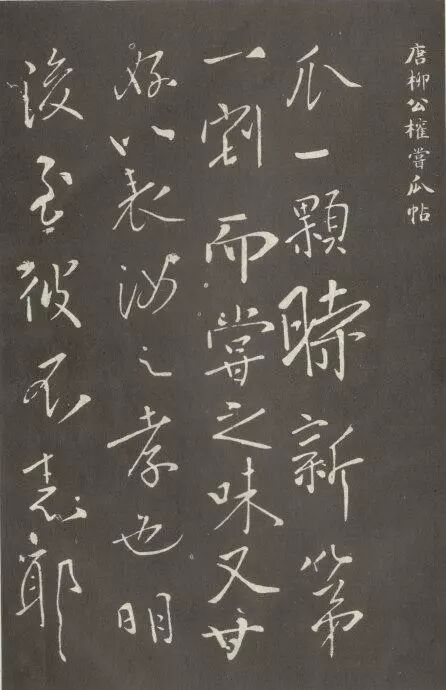 唐柳公權嘗瓜帖
瓜一顆時新第
一割而嘗之味又甘
好以表汝之孝也明
後至彼不志